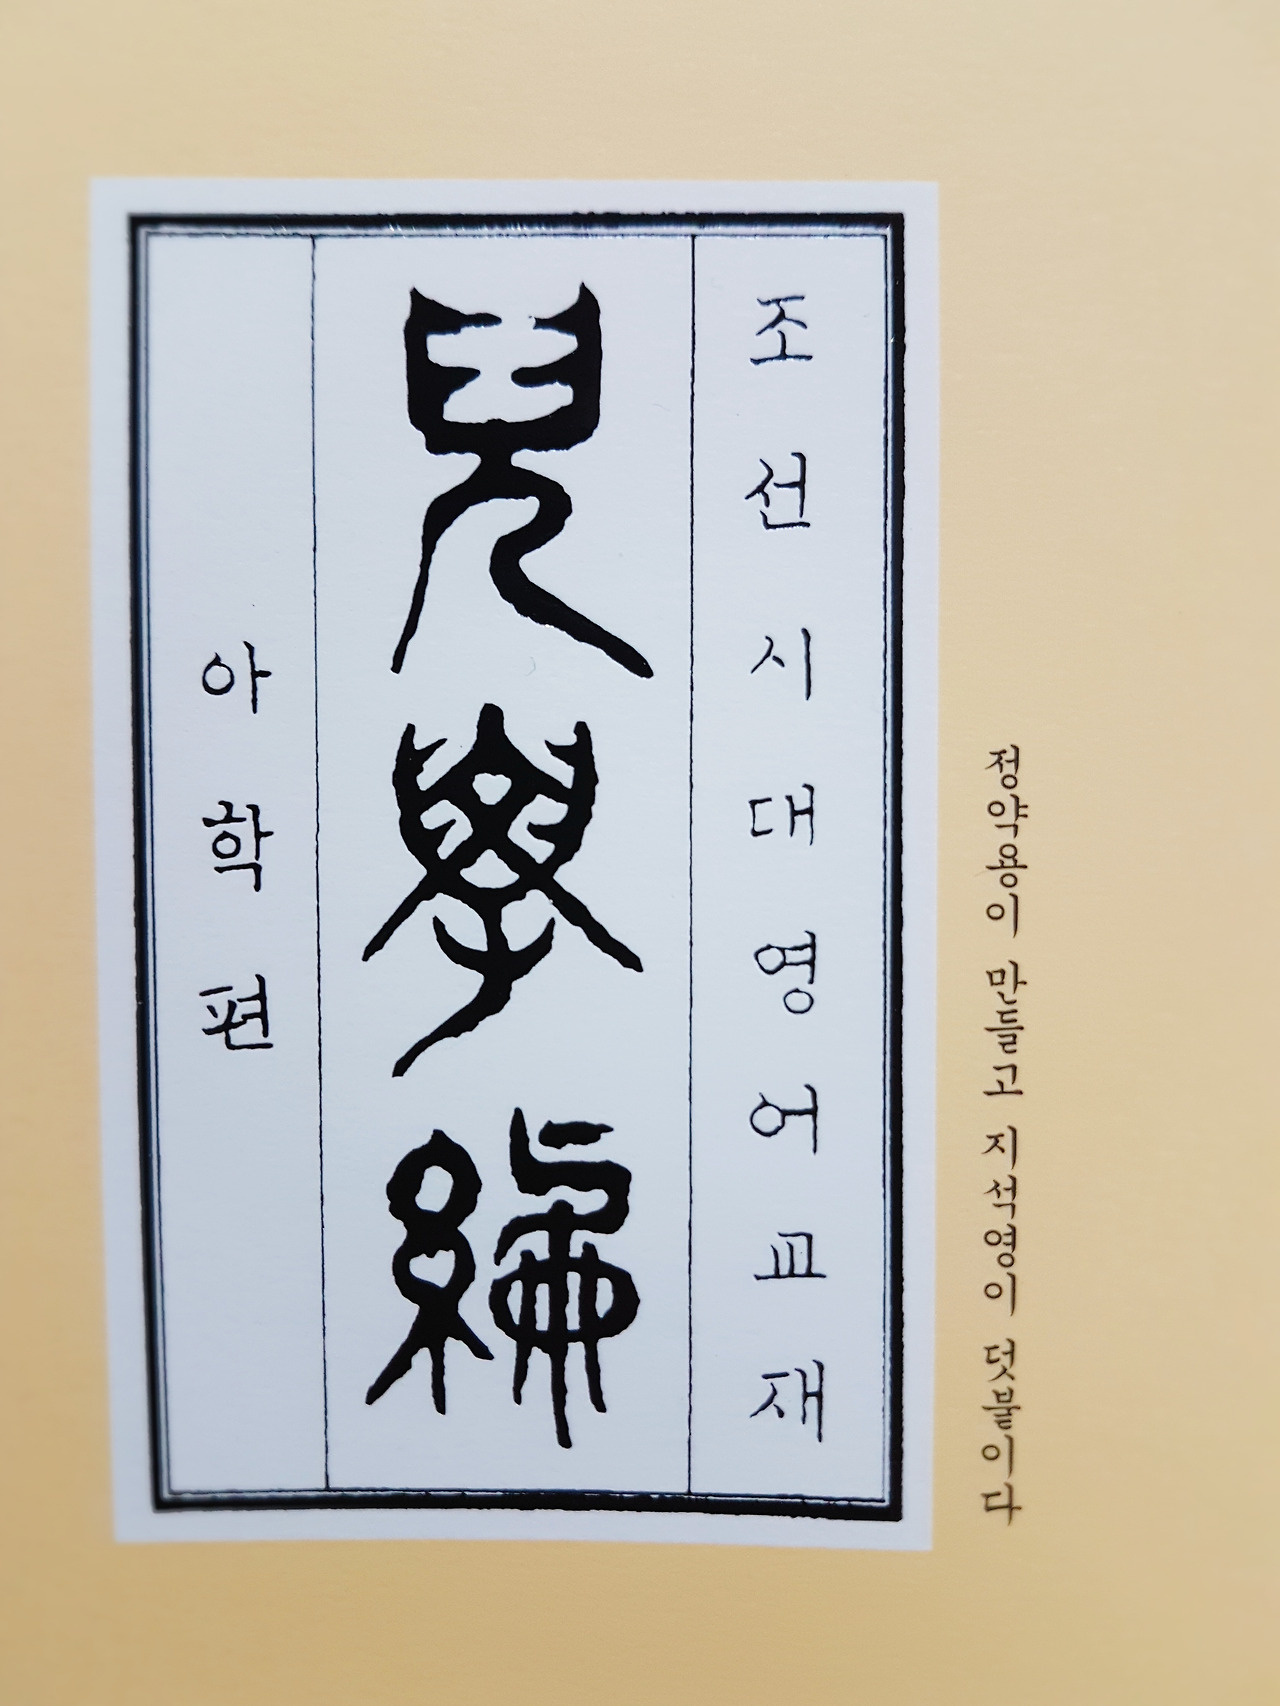 조선시대영어교재
兒學編
아학편
정약용이 만들고 지석영이 덧붙이다